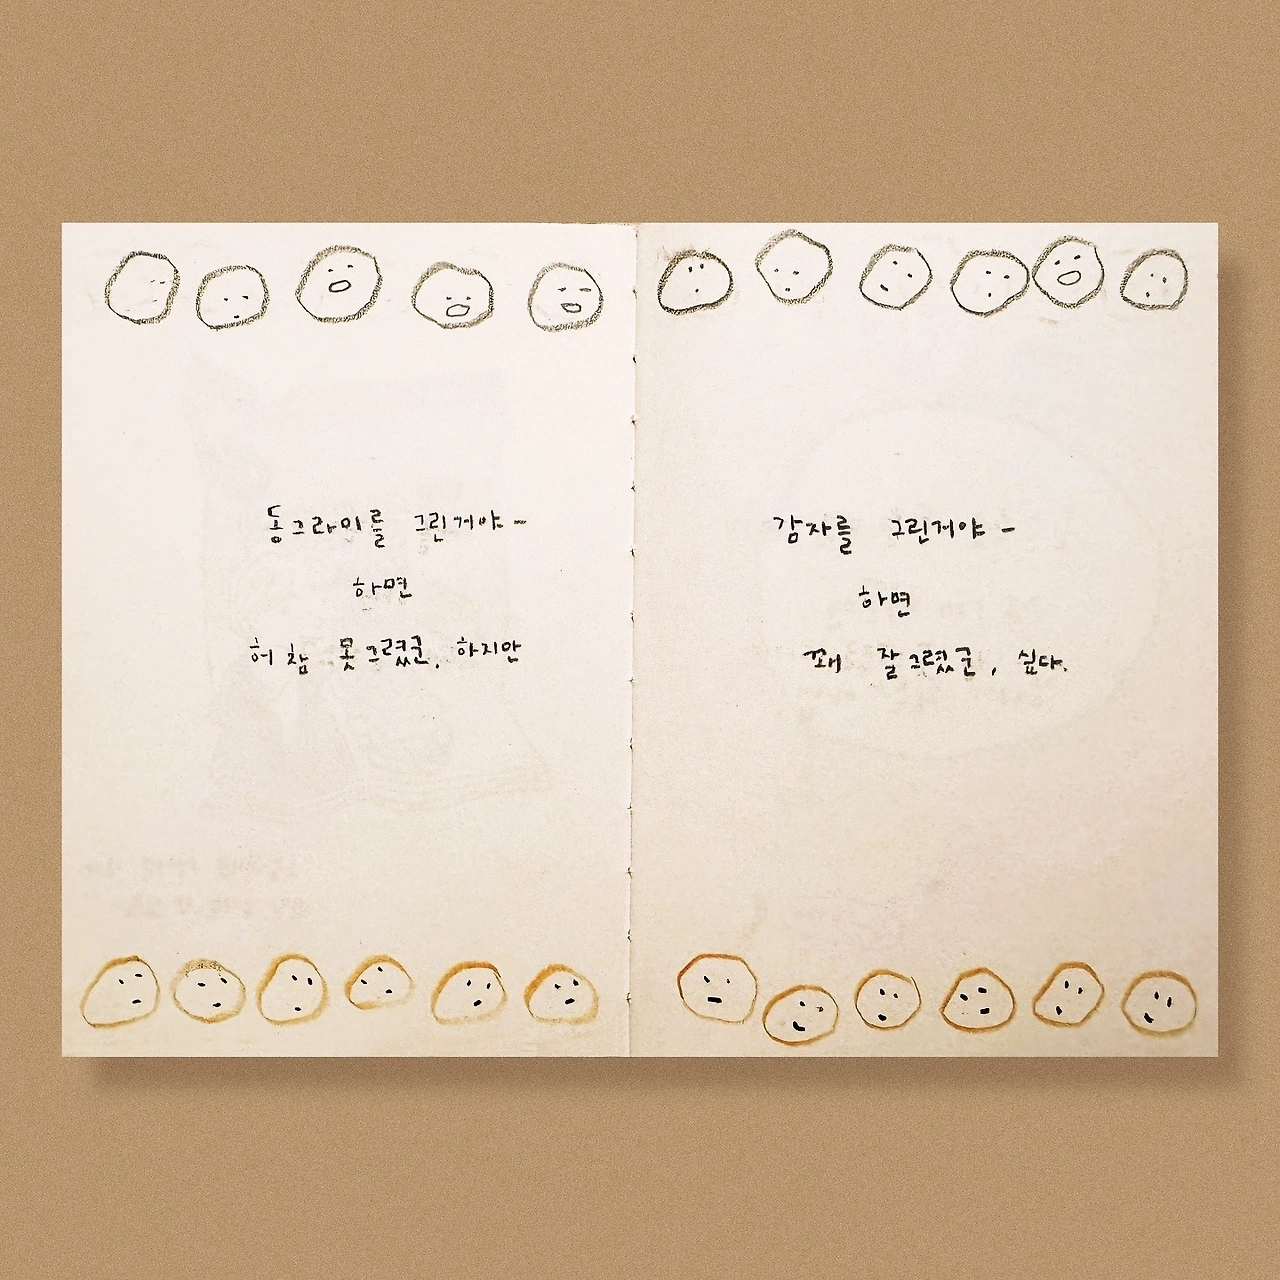 동그라미를 그린거야-
하면
허 참 못 그렸군, 하지만
감자를 그린거야-
하면
꽤 잘 그렸군, 싶다.